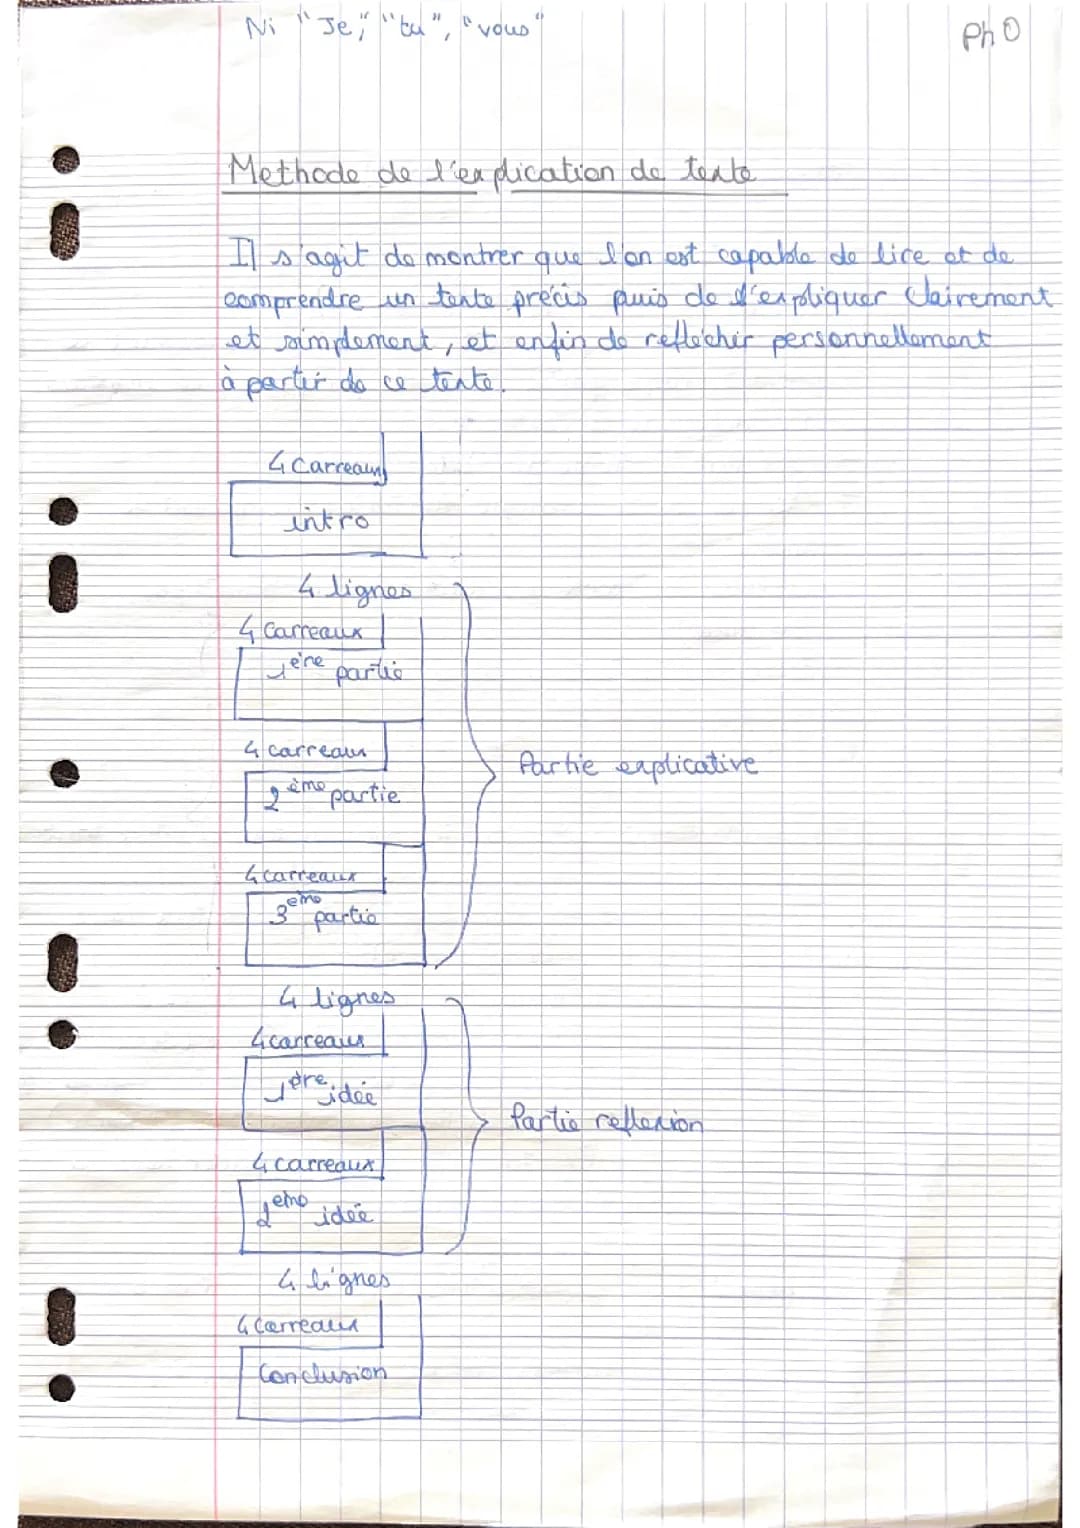 Ni "Je", "tu", "vous"
Ph 0
Methode de l'explication de texte
Il s'agit de montrer que l'on est capable de lire et de
comprendre un texte précis puis de l'expliquer clairement
et simplement, et enfin de reflechir personnellement
à partir de ce texte.
4 Carreaux
intro
4 lignes
4 Carreaux
1ère partie
4 carreaux
2ème partie
Partie explicative
4 carreaux
3eme partie
4 lignes
4 carreaux
1ère idée
Partie reflexion
4 carreaux
2eme idée
4 lignes
4 Carreaux
Conclusion